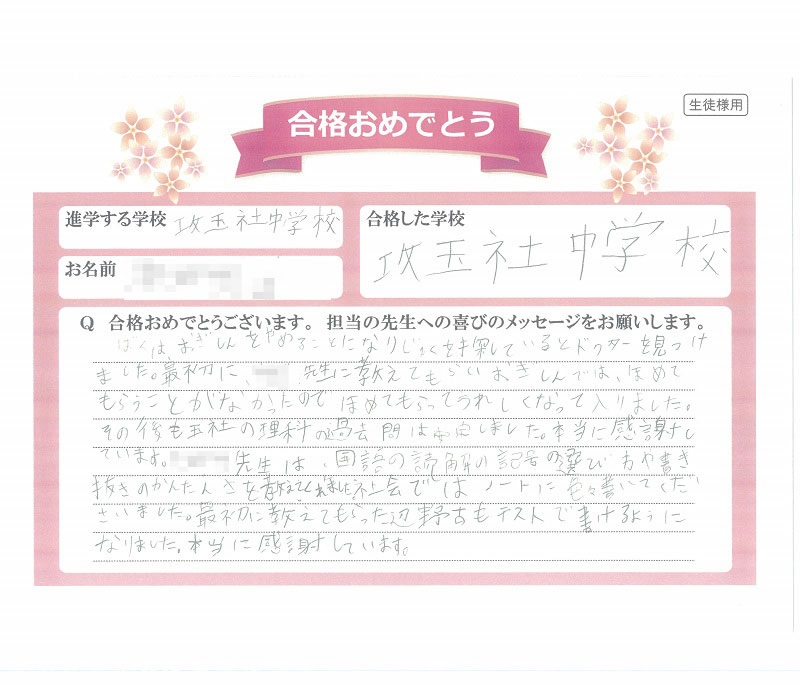 合格おめでとう
生徒様用
進学する学校 攻玉社中学校
合格した学校 攻玉社中学校
お名前
Q 合格おめでとうございます。担当の先生への喜びのメッセージをお願いします。
ぼくはおぎしんをやめることになりじゅくを探しているとドクターを見つけ
ました。最初に、 先生に教えてもらいおぎしんでは、ほめて
もらうことがなかったのでほめてもらってうれしくなって入りました。
その後も玉社の理科の過去問は安定しました。本当に感謝し
ています。 先生は、国語の読解の記号の選び方や書き
抜きのかんたんさを教えてくれました社会ではノートに色々書いてくだ
さいました。最初に教えてもらった辺野古もテストで書けるように
なりました。本当に感謝しています。